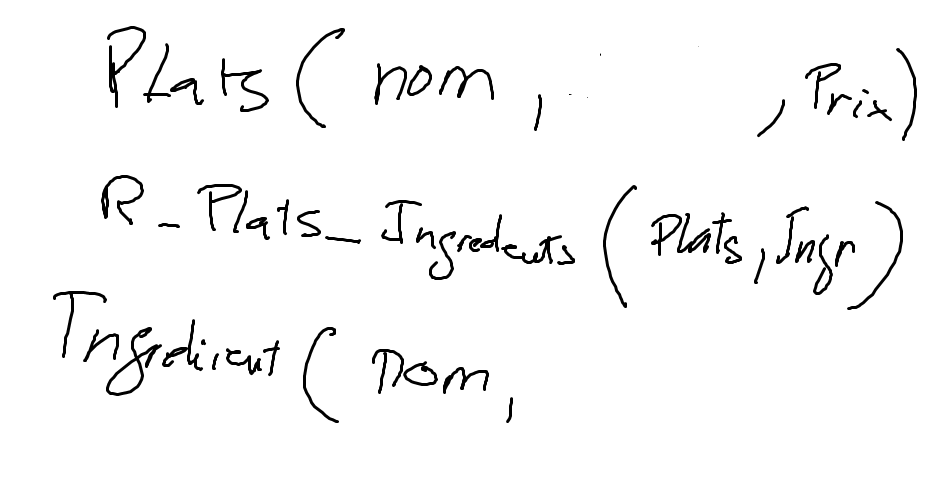 Plats ( nom , , Prix )
R_Plats_Ingredeuts ( Plats , Ingr )
Ingredient ( nom ,